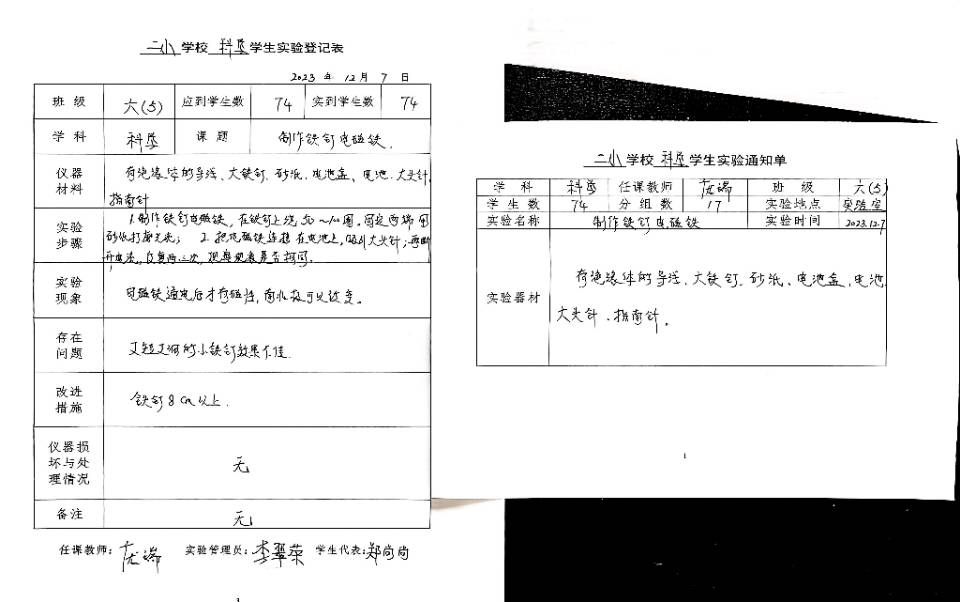 二小 学校 科学 学生实验登记表
2023 年 12 月 7 日
班 级 六(5) 应到学生数 74 实到学生数 74
学 科 科学 课 题 制作铁钉电磁铁.
仪器材料 有绝缘体的导线、大铁钉、砂纸、电池盒、电池、大头针、
指南针
实验步骤 1.制作铁钉电磁铁,在铁钉上绕 圈。两端用
砂纸打 ; 2. 把电磁铁连接在电池上,吸引大头针;再断
开电流,反复两三次,观察现象是否相同。
实验现象 电磁铁通电后才有磁性,南北极可以改变。
存在问题 又短又细的小铁钉效果不佳.
改进措施 铁钉8cm以上.
仪器损坏与处理情况 无
备注 无
任课教师: 实验管理员:李翠荣 学生代表:郑尚尚
1
二小 学校 科学 学生实验通知单
学 科 科学 任课教师 班 级 六(5)
学 生 数 74 分 组 数 17 实验地点 实验室
实验名称 制作铁钉电磁铁 实验时间 2023.12.7
实验器材 有绝缘体的导线、大铁钉、砂纸、电池盒、电池
大头针、指南针。
1